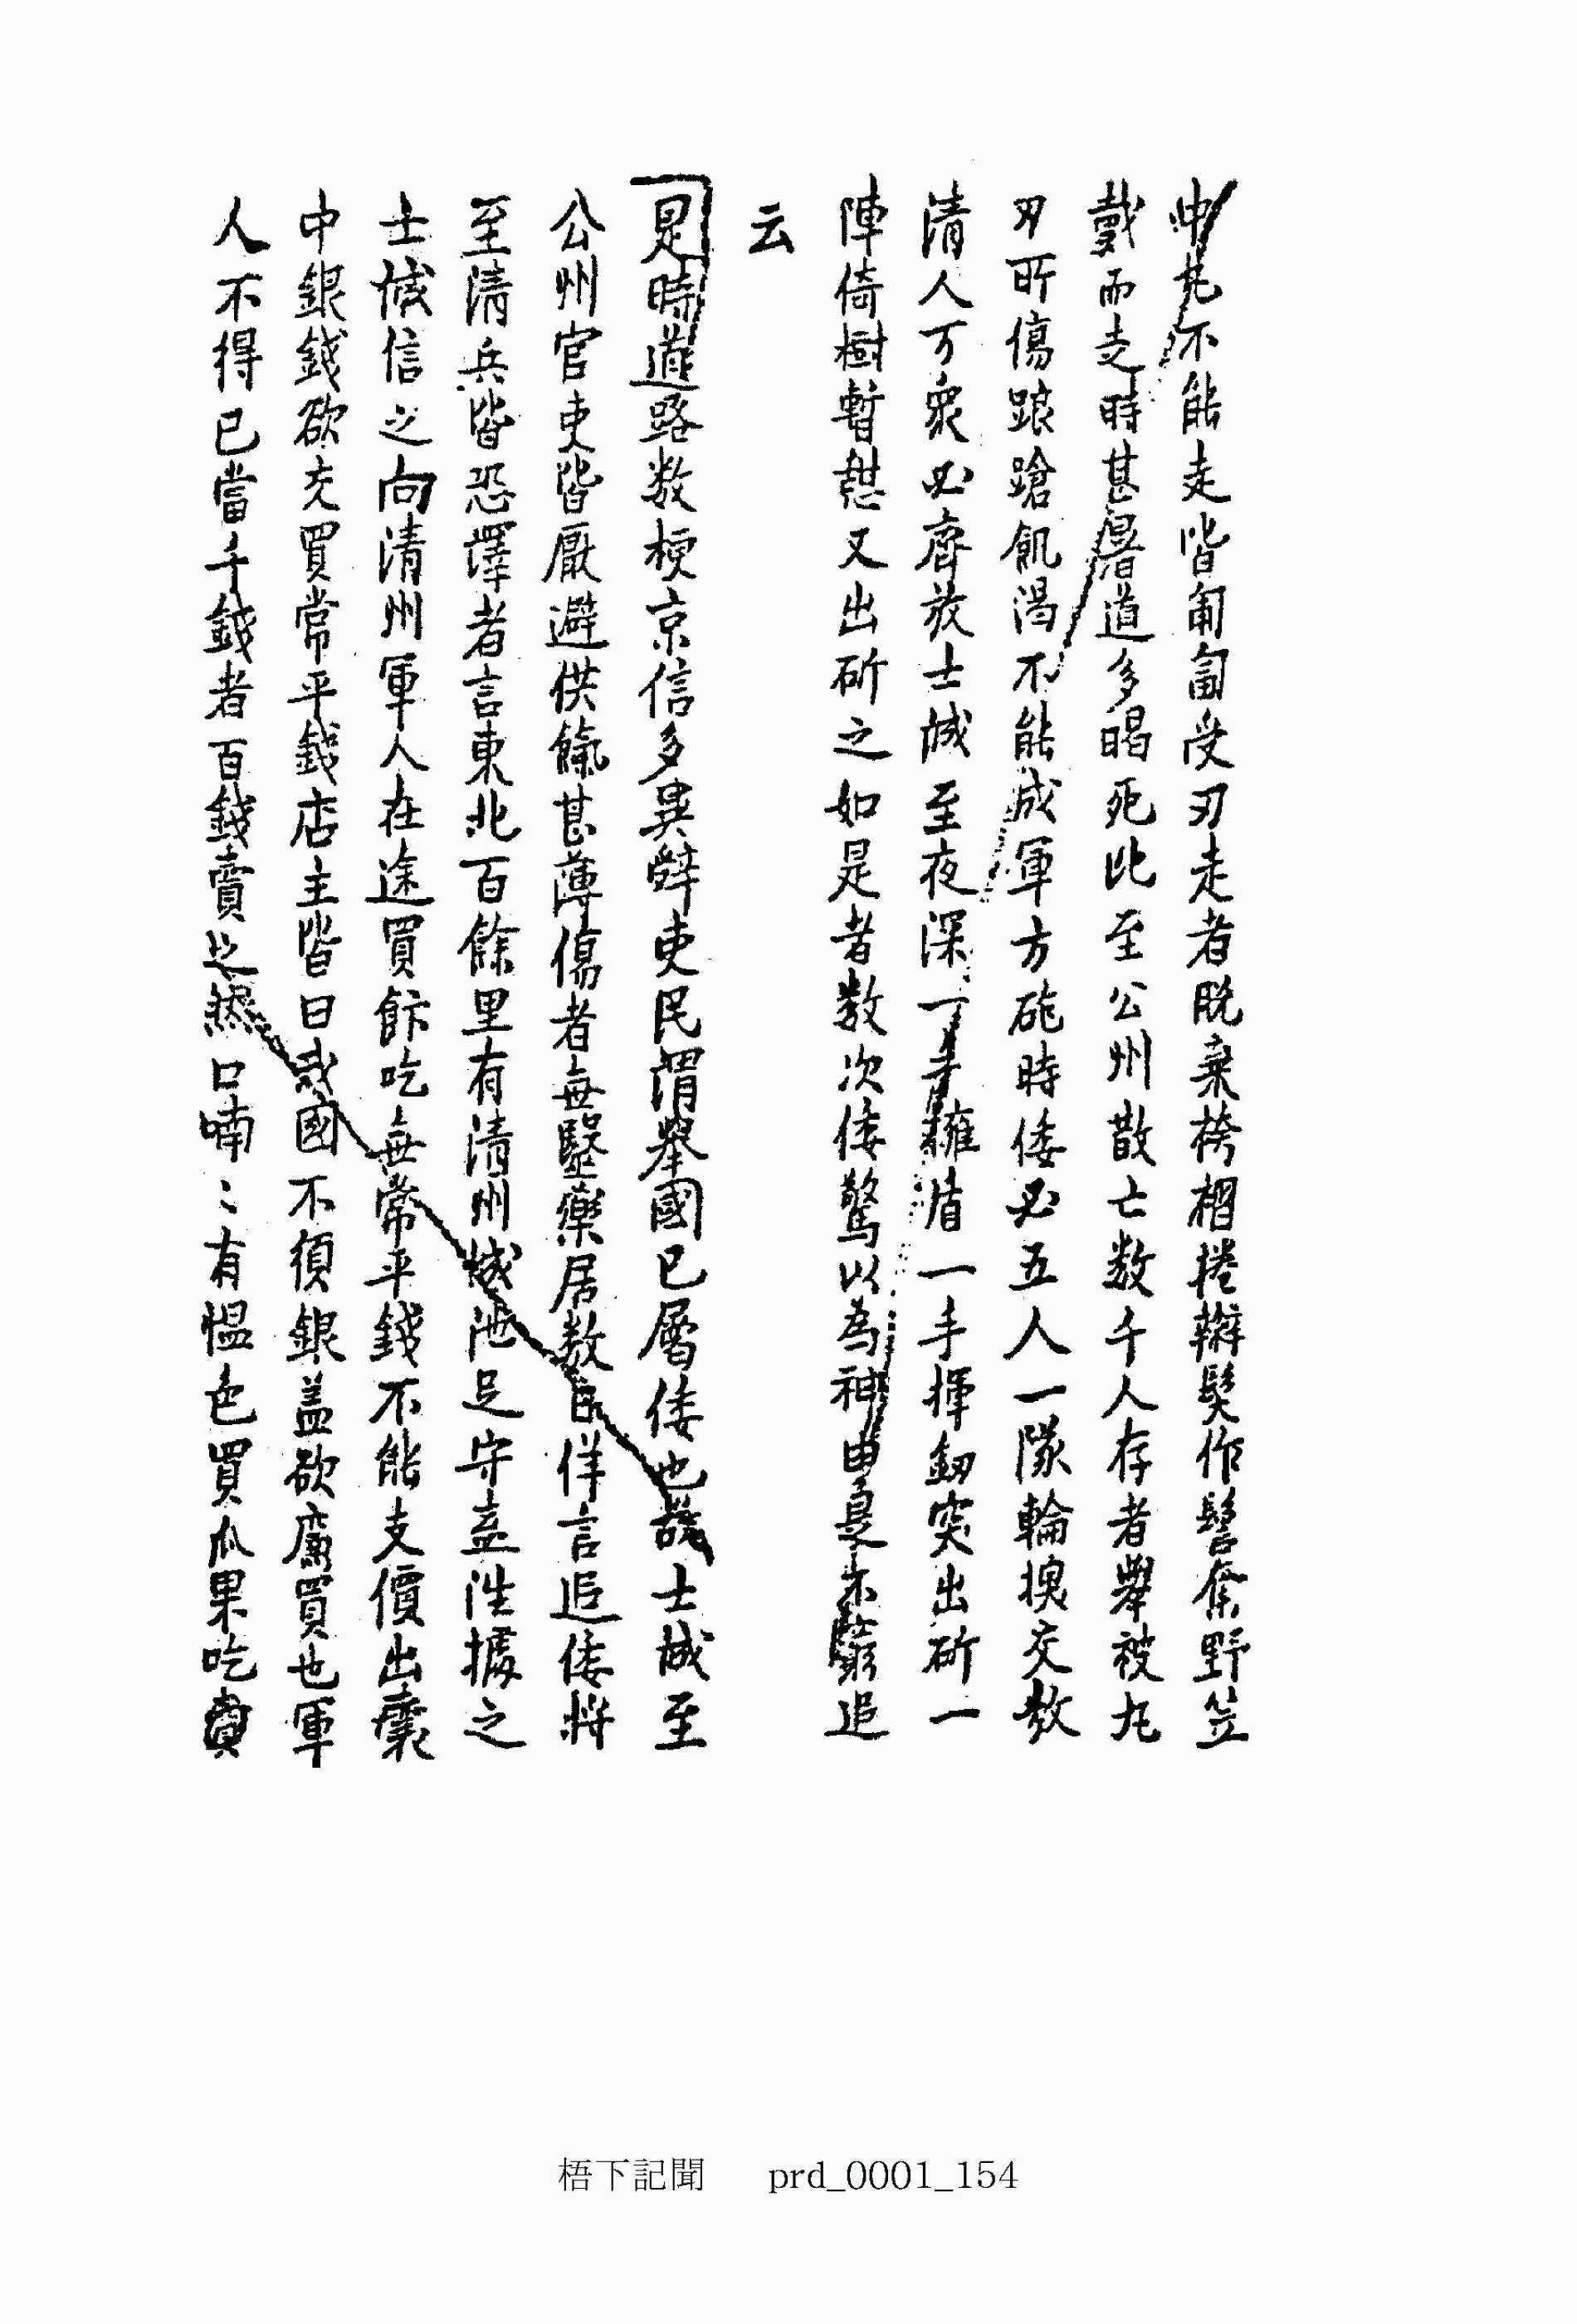 中丸不能走皆匍匐受刃走者脫棄袴褶捲辮髮作髻奪野笠
戴而走時甚暑道多暍死比至公州散亡数千人存者舉被丸
刃所傷踉蹌飢渴不能成軍方砲時倭必五人一隊輪換交教
清人可衆必齊放士成至夜深一手擁盾一手揮釼突出斫一
陣倚樹暫憇又出斫之如是者数次倭驚以為神由是不敢窮追
云
是時道路数梗京信多異辭吏民謂舉國已屬倭也故士成至
公州官吏皆厭避供餼甚薄傷者無醫藥居数日佯言追倭將
至清兵皆恐譯者言東北百餘里有清州城池足守盍往據之
士成信之向清州軍人在途買餅吃無常平錢不能支價出橐
中銀錢欲充買常平錢店主皆曰我國不須銀盖欲廉買也軍
人不得已當千錢者百錢賣之然口喃〻有慍色買瓜果吃賣